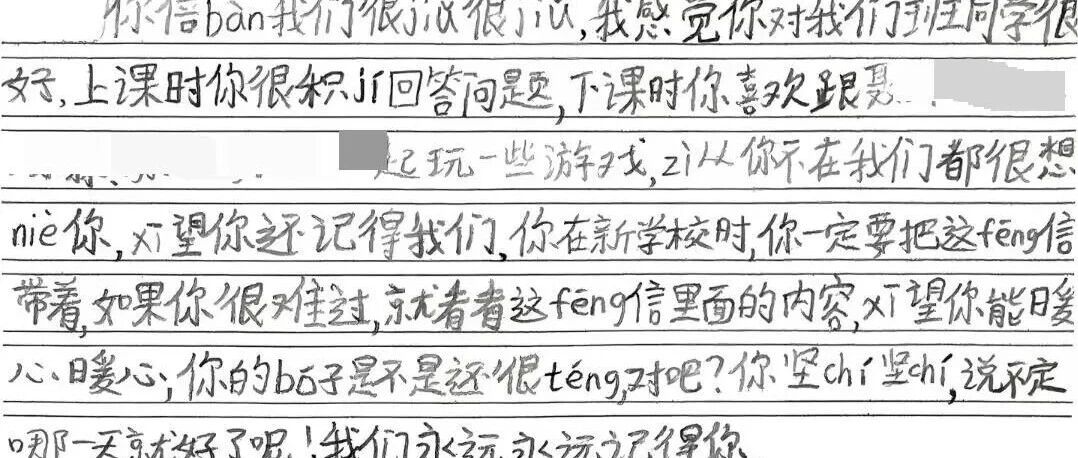 你信bàn我们很jiǔ很jiǔ,我感觉你对我们班同学很
好,上课时你很积jí回答问题,下课时你喜欢跟聂
起玩一些游戏,zì从你不在我们都很想
niè你,xī望你还记得我们,你在新学校时,你一定要把这fēng信
带着,如果你很难过,就看看这fēng信里面的内容,xī望你能暖
心暖心,你的bó子是不是还很téng,对吧?你坚chí坚chí,说不定
哪一天就好了呢!我们永远永远记得你